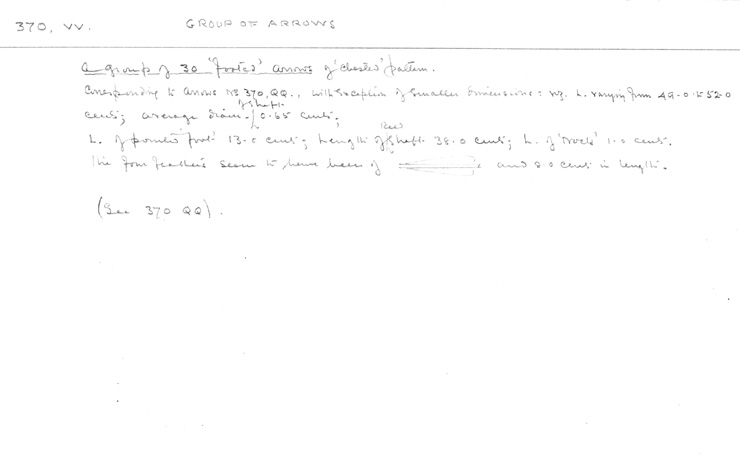 370, VV. GROUP OF ARROWS
A group of 30 'footed' arrows of 'chested' pattern.
Corresponding to arrows No 370, QQ., with exception of smaller dimensions: viz. L. varying from 49.0 to 52.0
cents; average diam. of shaft 0.65 cents;
L. of pointed 'foot' 13.0 cents; Length of Reed shaft 38.0 cents; L. of 'nock' 1.0 cent.
The four feathers seem to have been of and 8.0 cents in length.
(See 370 QQ).